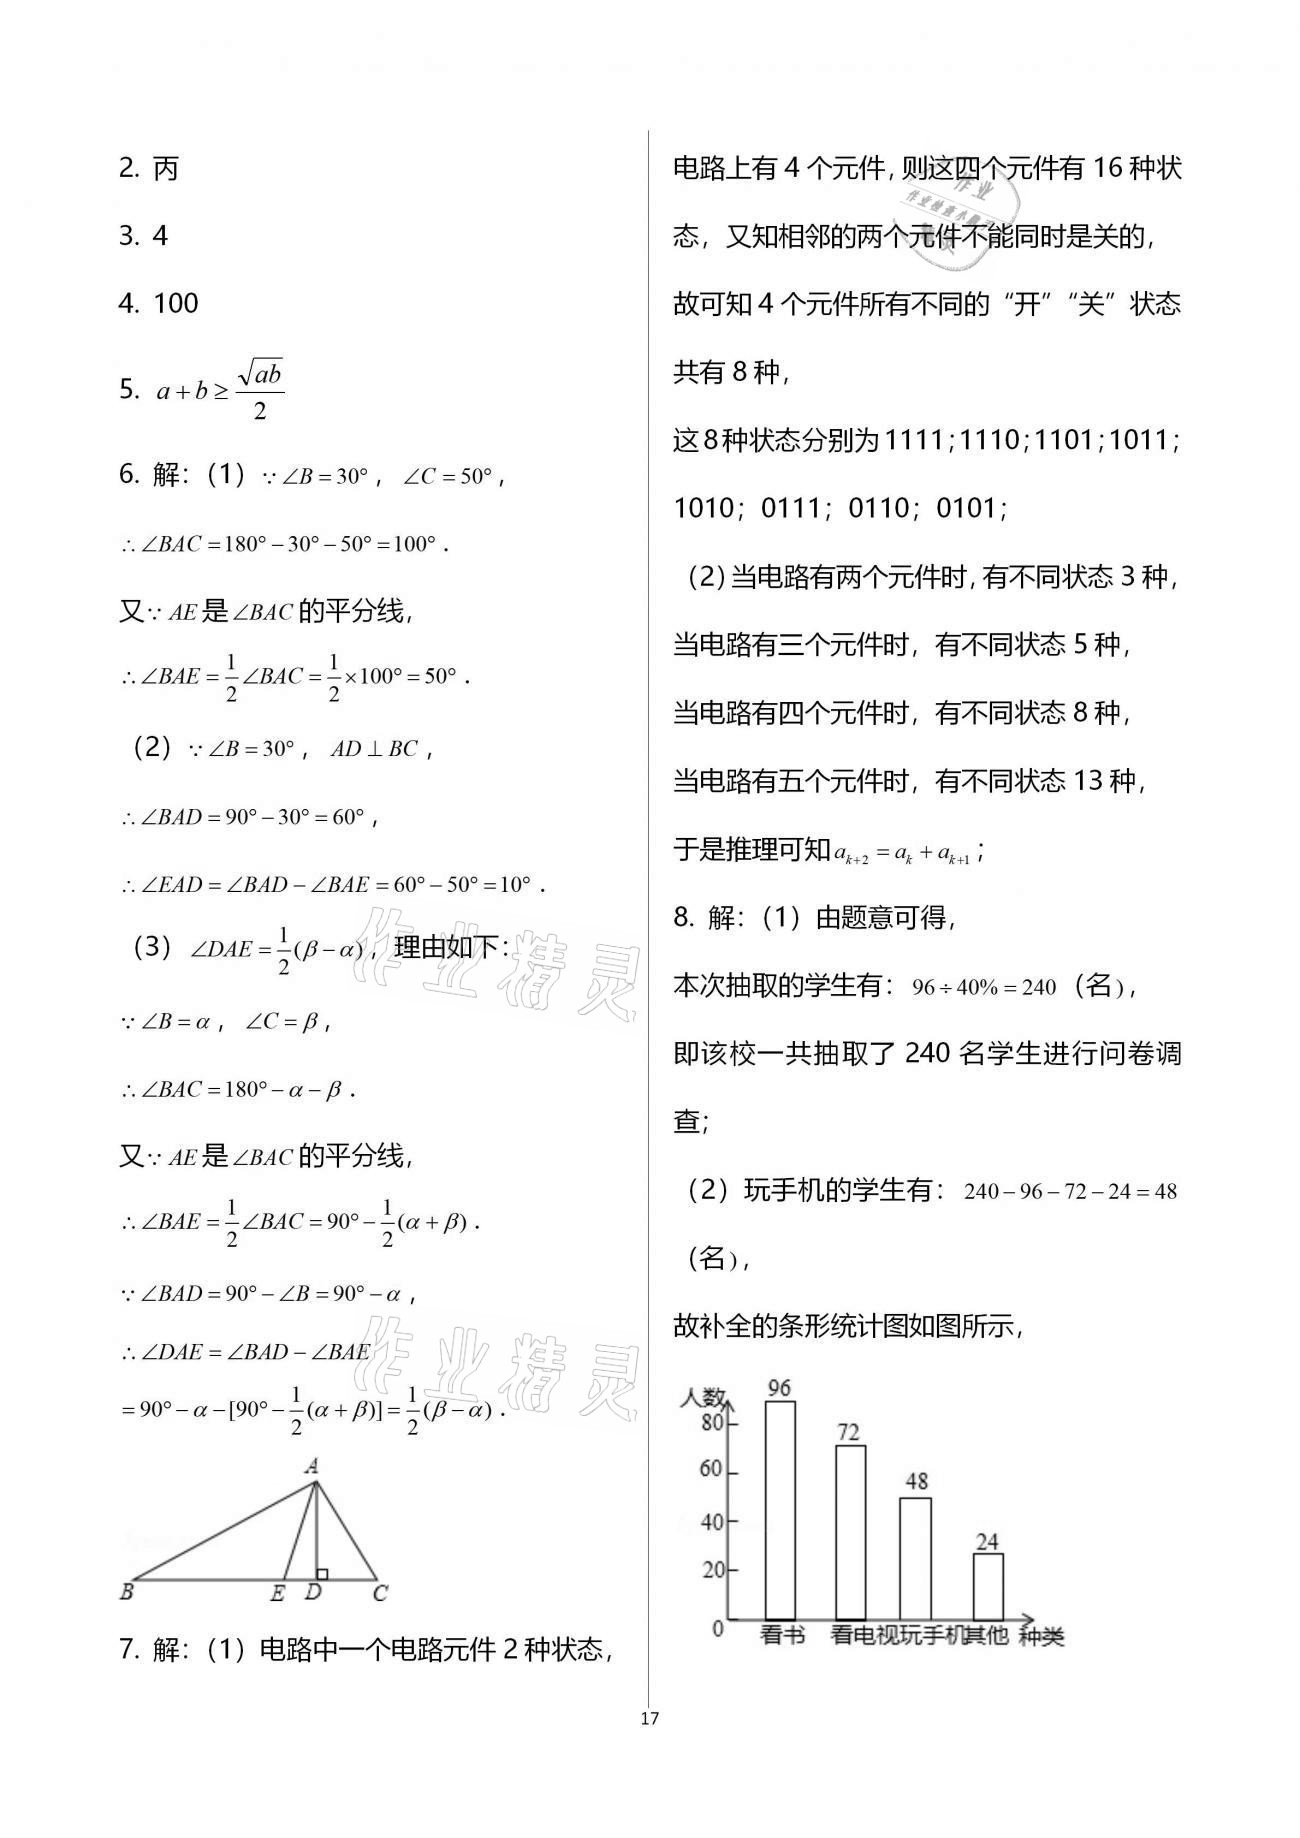 2. 丙
3. 4
4. 100
5. a+b≥√ab/2
6. 解：（1）∵∠B=30°，∠C=50°，
∴∠BAC=180°−30°−50°=100°．
又∵AE是∠BAC的平分线，
∴∠BAE=1/2∠BAC=1/2×100°=50°．
（2）∵∠B=30°，AD⊥BC，
∴∠BAD=90°−30°=60°，
∴∠EAD=∠BAD−∠BAE=60°−50°=10°．
（3）∠DAE=1/2(β−α)，理由如下：
∵∠B=α，∠C=β，
∴∠BAC=180°−α−β．
又∵AE是∠BAC的平分线，
∴∠BAE=1/2∠BAC=90°−1/2(α+β)．
∵∠BAD=90°−∠B=90°−α，
∴∠DAE=∠BAD−∠BAE
=90°−α−[90°−1/2(α+β)]=1/2(β−α)．
A
B E D C
7. 解：（1）电路中一个电路元件2种状态，
电路上有4个元件，则这四个元件有16种状
态，又知相邻的两个元件不能同时是关的，
故可知4个元件所有不同的“开”“关”状态
共有8种，
这8种状态分别为1111；1110；1101；1011；
1010；0111；0110；0101；
（2）当电路有两个元件时，有不同状态3种，
当电路有三个元件时，有不同状态5种，
当电路有四个元件时，有不同状态8种，
当电路有五个元件时，有不同状态13种，
于是推理可知aₖ₊₂=aₖ+aₖ₊₁；
8. 解：（1）由题意可得，
本次抽取的学生有：96÷40%=240（名），
即该校一共抽取了240名学生进行问卷调
查；
（2）玩手机的学生有：240−96−72−24=48
（名），
故补全的条形统计图如图所示，
人数
96
80
72
60
48
40
24
20
0
看书 看电视玩手机其他 种类
17
作业精灵
作业精灵
作业
作业检查小助手
精灵